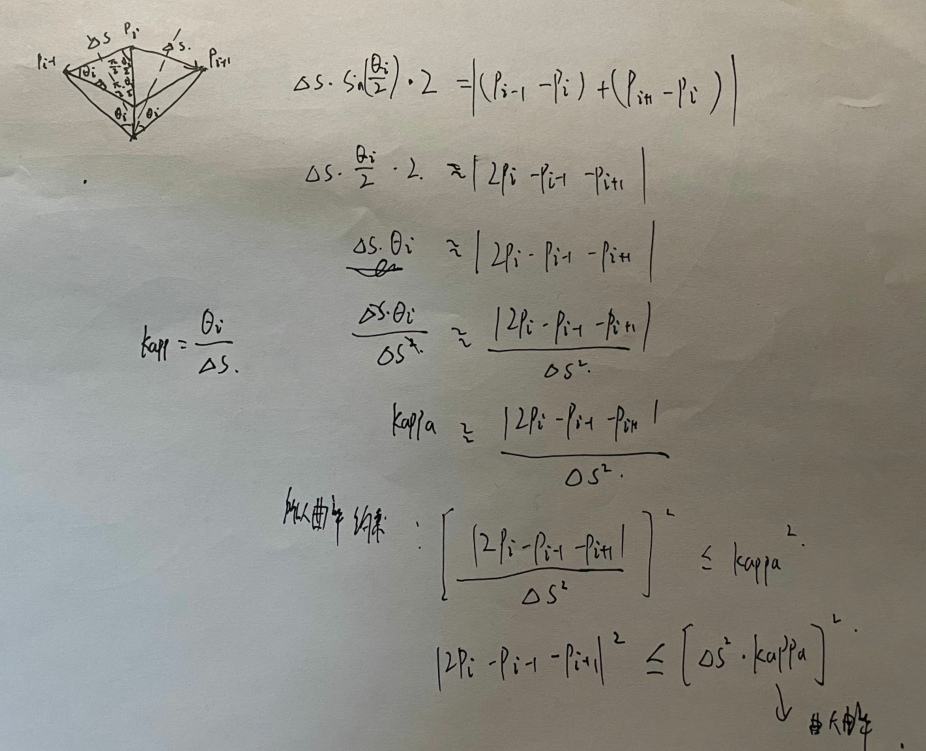 ΔS Pi ΔS.
Pi-1 Pi+1
θi
θi θi
ΔS · Sin(θi/2) · 2 = |(Pi-1 - Pi) + (Pi+1 - Pi)|
ΔS · θi/2 · 2. ≈ |2Pi - Pi-1 - Pi+1|
ΔS · θi ≈ |2Pi - Pi-1 - Pi+1|
kapp = θi/ΔS.
ΔS·θi/ΔS². ≈ |2Pi - Pi-1 - Pi+1|/ΔS².
kappa ≈ |2Pi - Pi-1 - Pi+1|/ΔS².
所以曲率约束: [|2Pi - Pi-1 - Pi+1|/ΔS²]² ≤ kappa².
|2Pi - Pi-1 - Pi+1|² ≤ [ΔS² · kappa]².
↓ 曲率